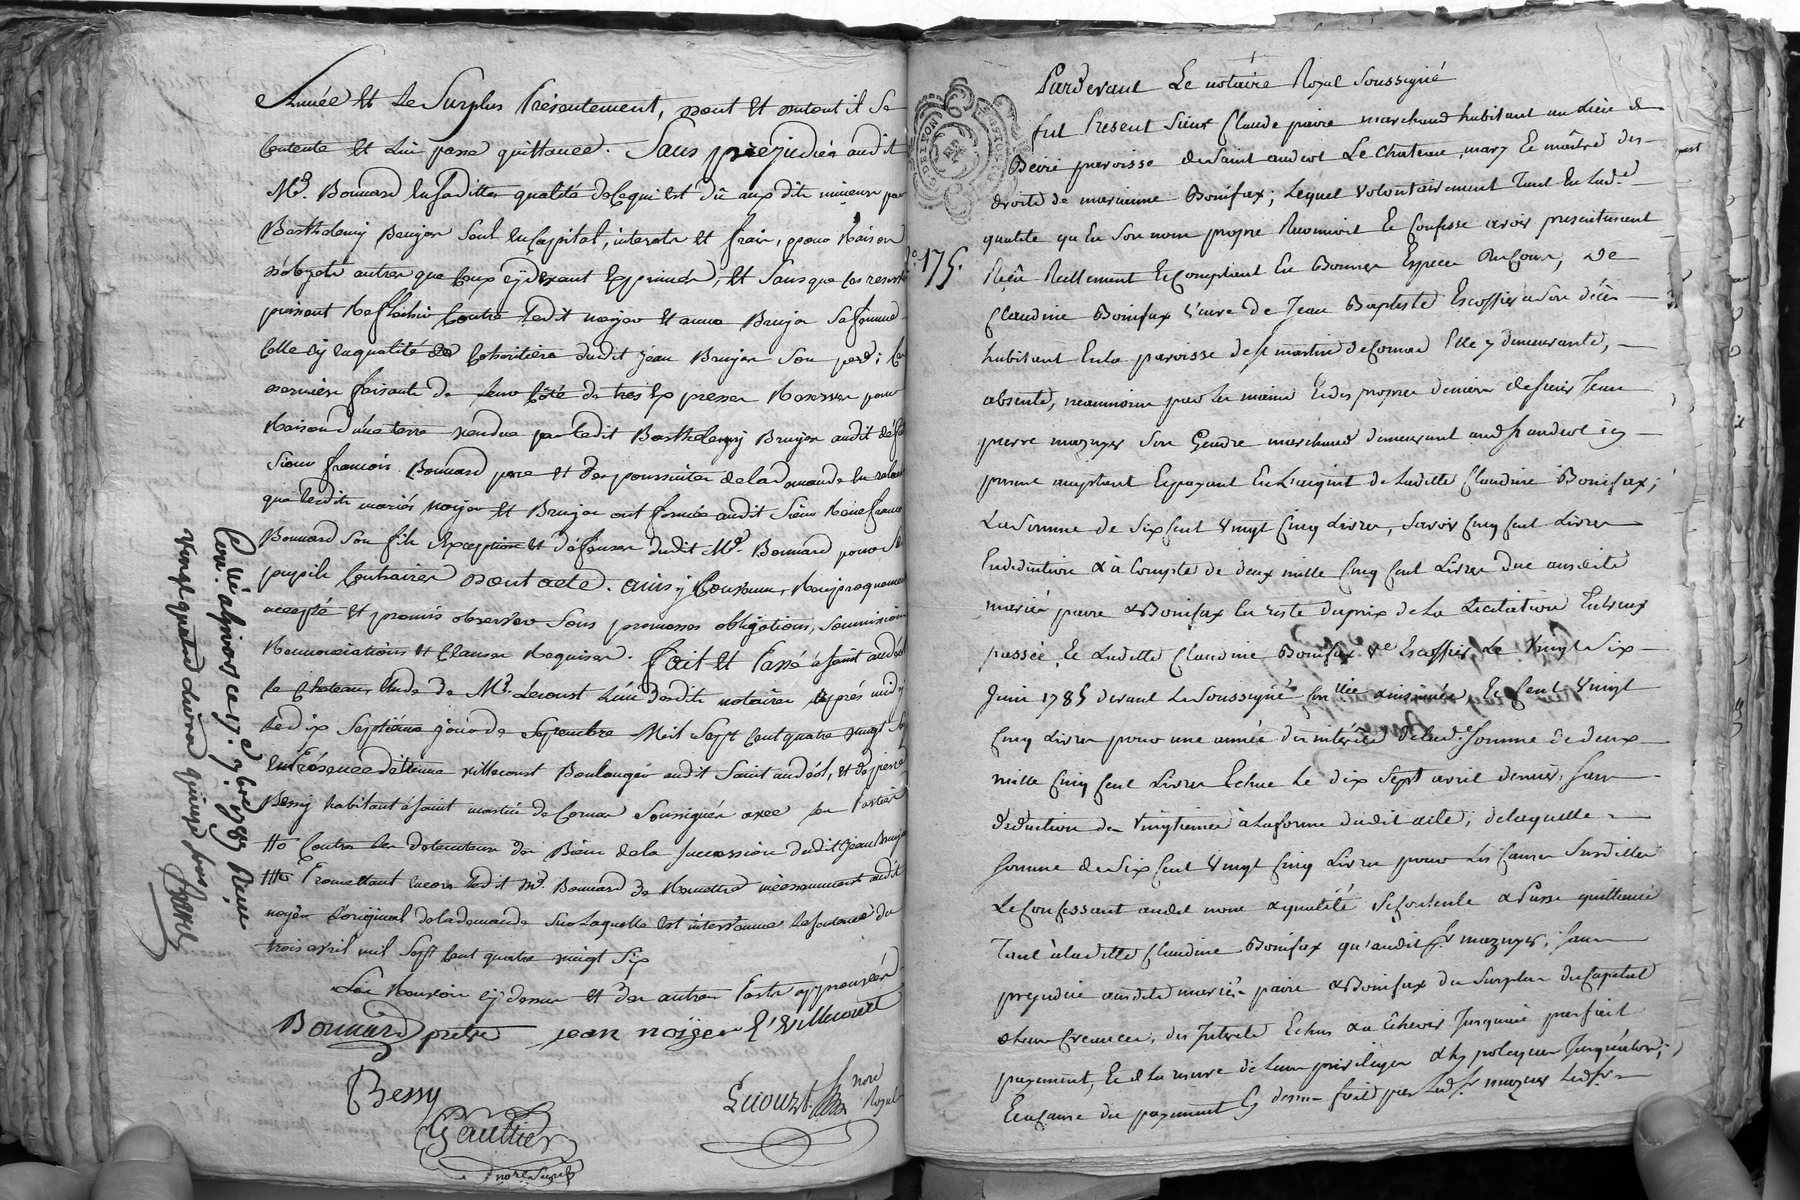 année et le Surplus Présentement, dont et dutout il Se
Contente et Lui passe quittance. Sans préjudice audit
Mr. Bonnard en saditte qualité de Ce qui est dû aux dits mineurs par
Barthelemy Brujon Soit en Capital, interets et frais, pour Raison
d'objets autres que Ceux cy devant Exprimés, et Sans que les reserves
puissent Reflechir Contre ledit noyer et anne Brujon Sa femme
Celle cy en qualité de Cohéritière dudit jean Brujon Son pere; Ces
derniers faisants de leur Côté de tres Expresses Reserves pour
Raison d'une terre vendue par ledit Barthelemy Brujon audit défunt
Sieur françois Bonnard pere et des poursuites de la demande en
que lesdits mariés noyer et Brujon ont formée audit Sieur françois
Bonnard Son fils Exceptions et défenses dudit Mr. Bonnard pour Ses
pupils Contraires dont acte. ainsy Convenu, Reciproquement
accepté et promis observer Sous promesses obligations, Soumissions
Renonciations et Clauses Requises. fait et Passé à Saint andéol
le Chateau Etude de Mr. Lecourt L'un desdits notaires après midy
Le dix Septième jour de Septembre Mil Sept Cent quatre vingt Sept
En Présence d'Etienne villecourt Boulanger audit Saint andéol, et de pierre
Bessy habitant à saint martin de Cornas Soussignés avec les Parties
# Contre les detenteurs des Biens de la Succession dudit jean Brujon
## Promettant encore ledit Mr. Bonnard de Remettre incessamment audit
noyer L'original de la demande Sur laquelle est intervenue la Sentence du
trois avril mil Sept Cent quatre vingt Six
Les Renvois cy dessus et des autres Parts approuvés
Bonnard prêtre jean noÿer E. Villecourt
Bessy
Lecourt nore Royal
Gaultier
nore Royal
Conlé à Givors ce 17. 7bre 1787 Reçu
vingt quatre Livres quinze sous
Pardevant Le notaire Royal Soussigné
fut Present Sieur Claude paire marchand habitant au Lieu de
paroisse de Saint andeol Le Chateau, mary Et maitre des
droits de marianne Bonifax; Lequel Volontairement Tant En Lade.
qualité qu'En Son nom propre Reconnoit Et Confesse avoir presentement
No. 175.
Reçu Reellement Et Comptant En Bonnes Especes au Cours, De
Claudine Bonifax Veuve de Jean Baptiste Escoffier a Son décès
habitant En la paroisse de St martin de Cornas Elle y demeurante,
absente, neanmoins par les mains Et des propres deniers de Sieur Jean
pierre mazuyer Son Gendre marchand demeurant aud St andeol icy
present acceptant Et payant En L'acquit de Laditte Claudine Bonifax;
La Somme de Six Cent Vingt Cinq Livres, Savoir Cinq Cent Livres
En deduction & à Compte de deux mille Cinq Cent Livres due ausdits
mariés paire & Bonifax En reste du prix de La Licitation Entr'eux
passée, Et Laditte Claudine Bonifax Ve Escoffier Le Vingt Six
Juin 1785 devant Le Soussigné, Conllée & insinuée, Et Cent Vingt
Cinq Livres pour une année des intérêts de Lade. Somme de deux
mille Cinq Cent Livres Echue Le dix Sept avril dernier, Sans
déduction de Vingtiemes à La forme dudit acte; de Laquelle
Somme de Six Cent Vingt Cinq Livres pour Les Causes Susdittes
Le Confessant audit nom & qualité Se Contente & Passe quittance
Tant à Laditte Claudine Bonifax qu'audit Sr mazuyer; Sans
prejudice ausdits mariés paire & Bonifax du Surplus du Capital
de Leur Creance, des Interets Echus & à Echeoir Jusqu'au parfait
payement, Et de La reserve de Leurs privileges & hypoteques Jusqu'alors;
Et a Cause du payement Cy dessus fait par Led. Sr mazuyer Led. Sr